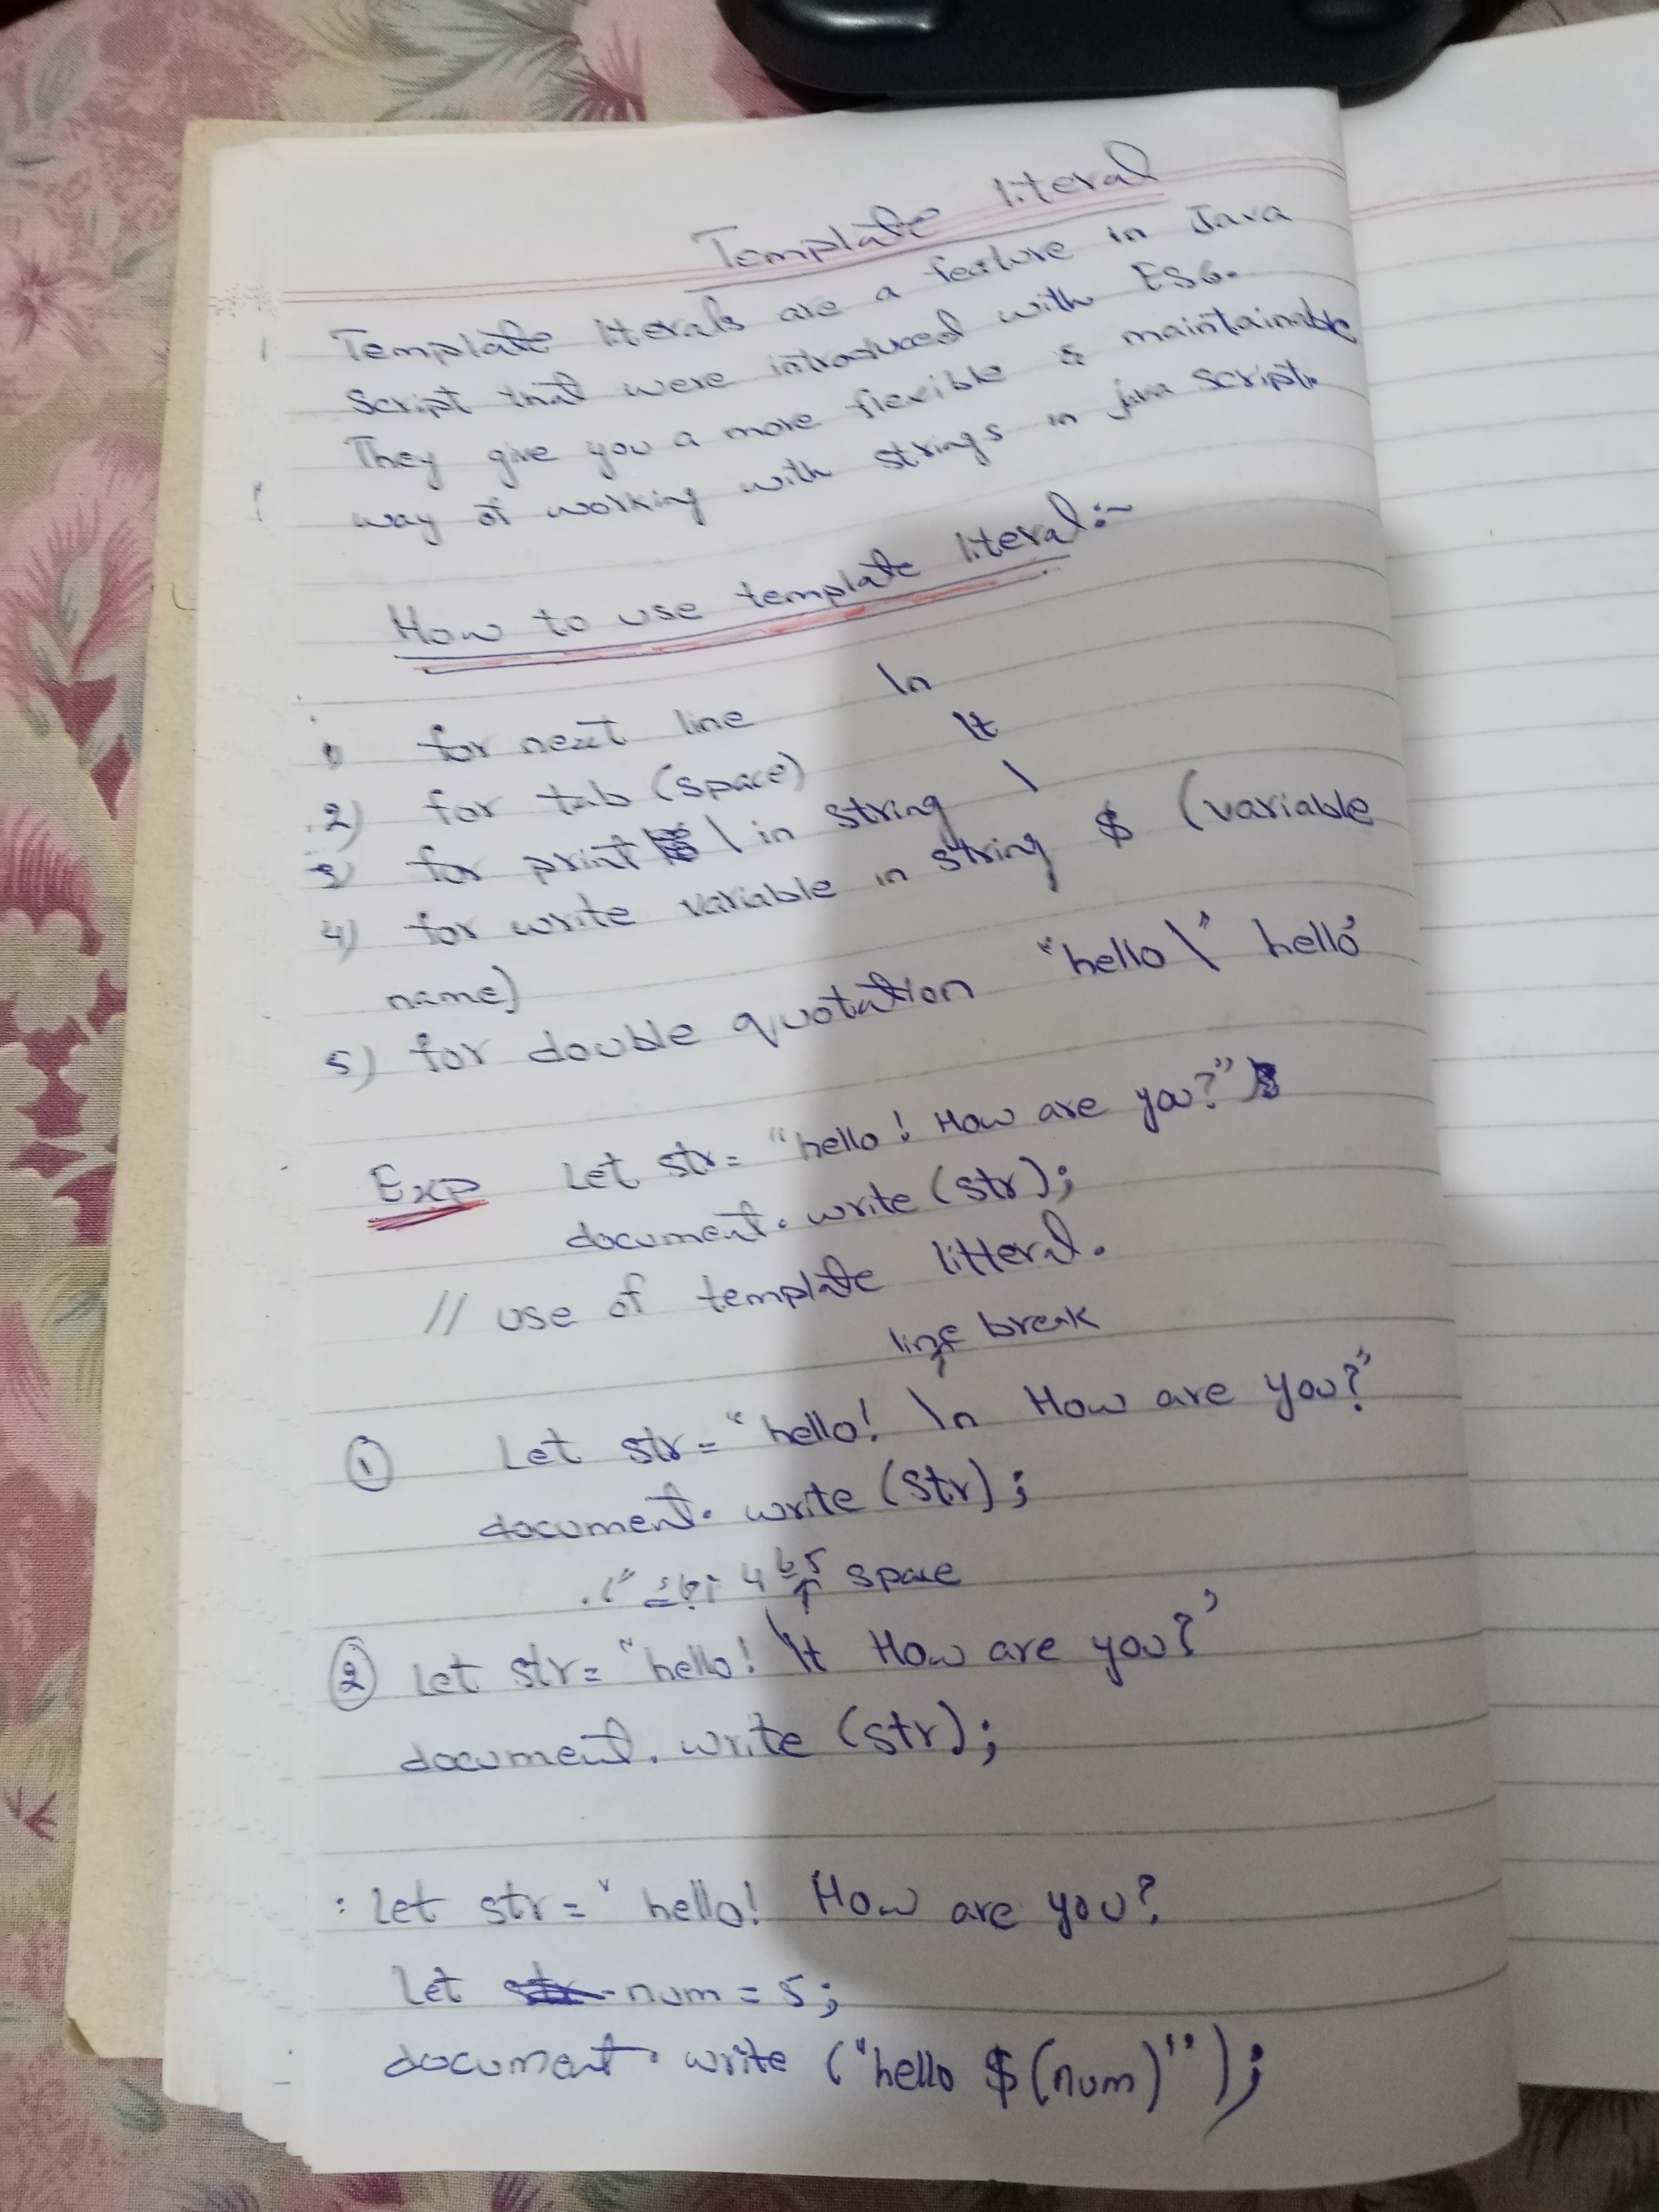 Template literal
Template literals are a feature in Java
Script that were introduced with ES6.
They give you a more flexible & maintainable
way of working with strings in java script.
How to use template literal:-
1) for next line \n
2) for tab (space) \t
3) for print \ in string \
4) for write variable in string $ (variable
name)
5) for double quotation "hello \" hello"
Exp Let str= "hello! How are you?"
document.write (str);
// use of template litteral.
line break
① Let str= "hello! \n How are you?"
document.write (str);
4 to 5 space
② Let str= "hello! \t How are you?"
document.write (str);
: Let str= "hello! How are you?
Let num = 5;
document.write ("hello $(num)");